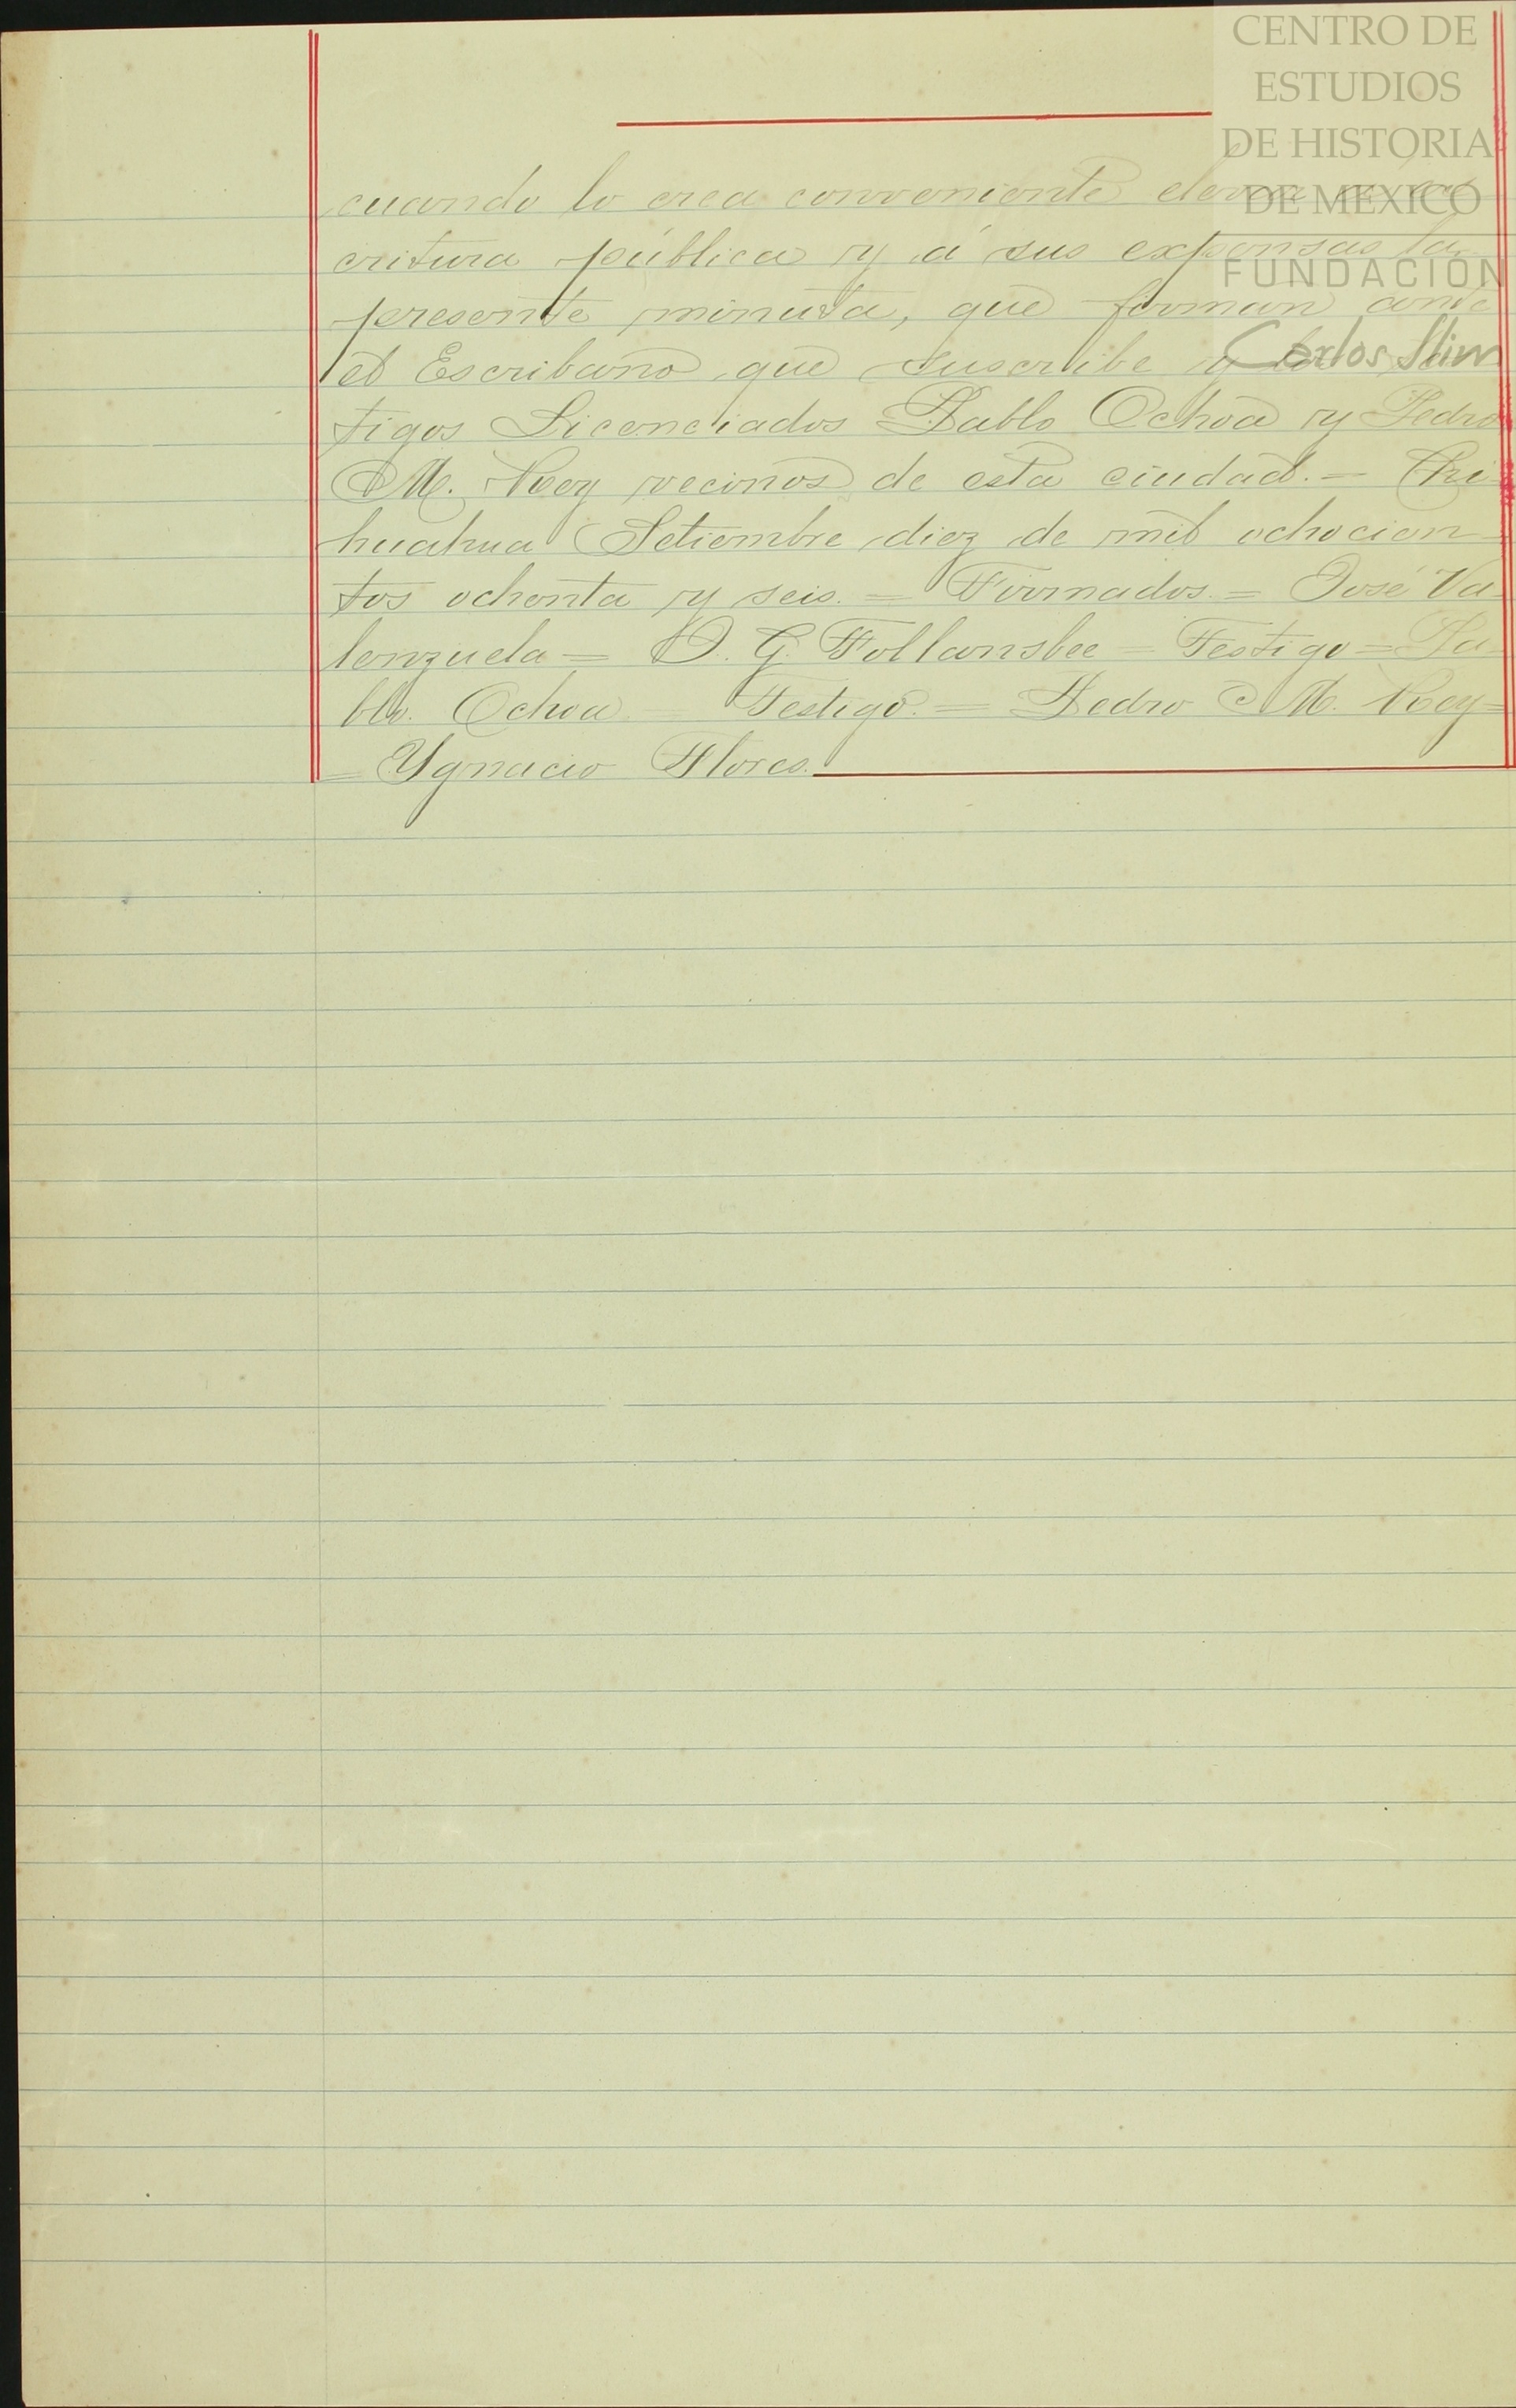 CENTRO DE
ESTUDIOS
DE HISTORIA
DE MEXICO
FUNDACIÓN
Carlos Slim
cuando lo crea conveniente
critura pública y á sus expensas la
presente minuta, que firman ante
el Escribano que suscribe y
tigos Licenciados Pablo Ochoa y Pedro
M. vecinos de esta ciudad.= Chi-
huahua Setiembre diez de mil ochocien-
tos ochenta y seis.= Firmados.= José Va-
lenzuela= G. Follansbee= Testigo= Pa-
blo. Ochoa Testigo.= Pedro M.
= Ygnacio Flores.